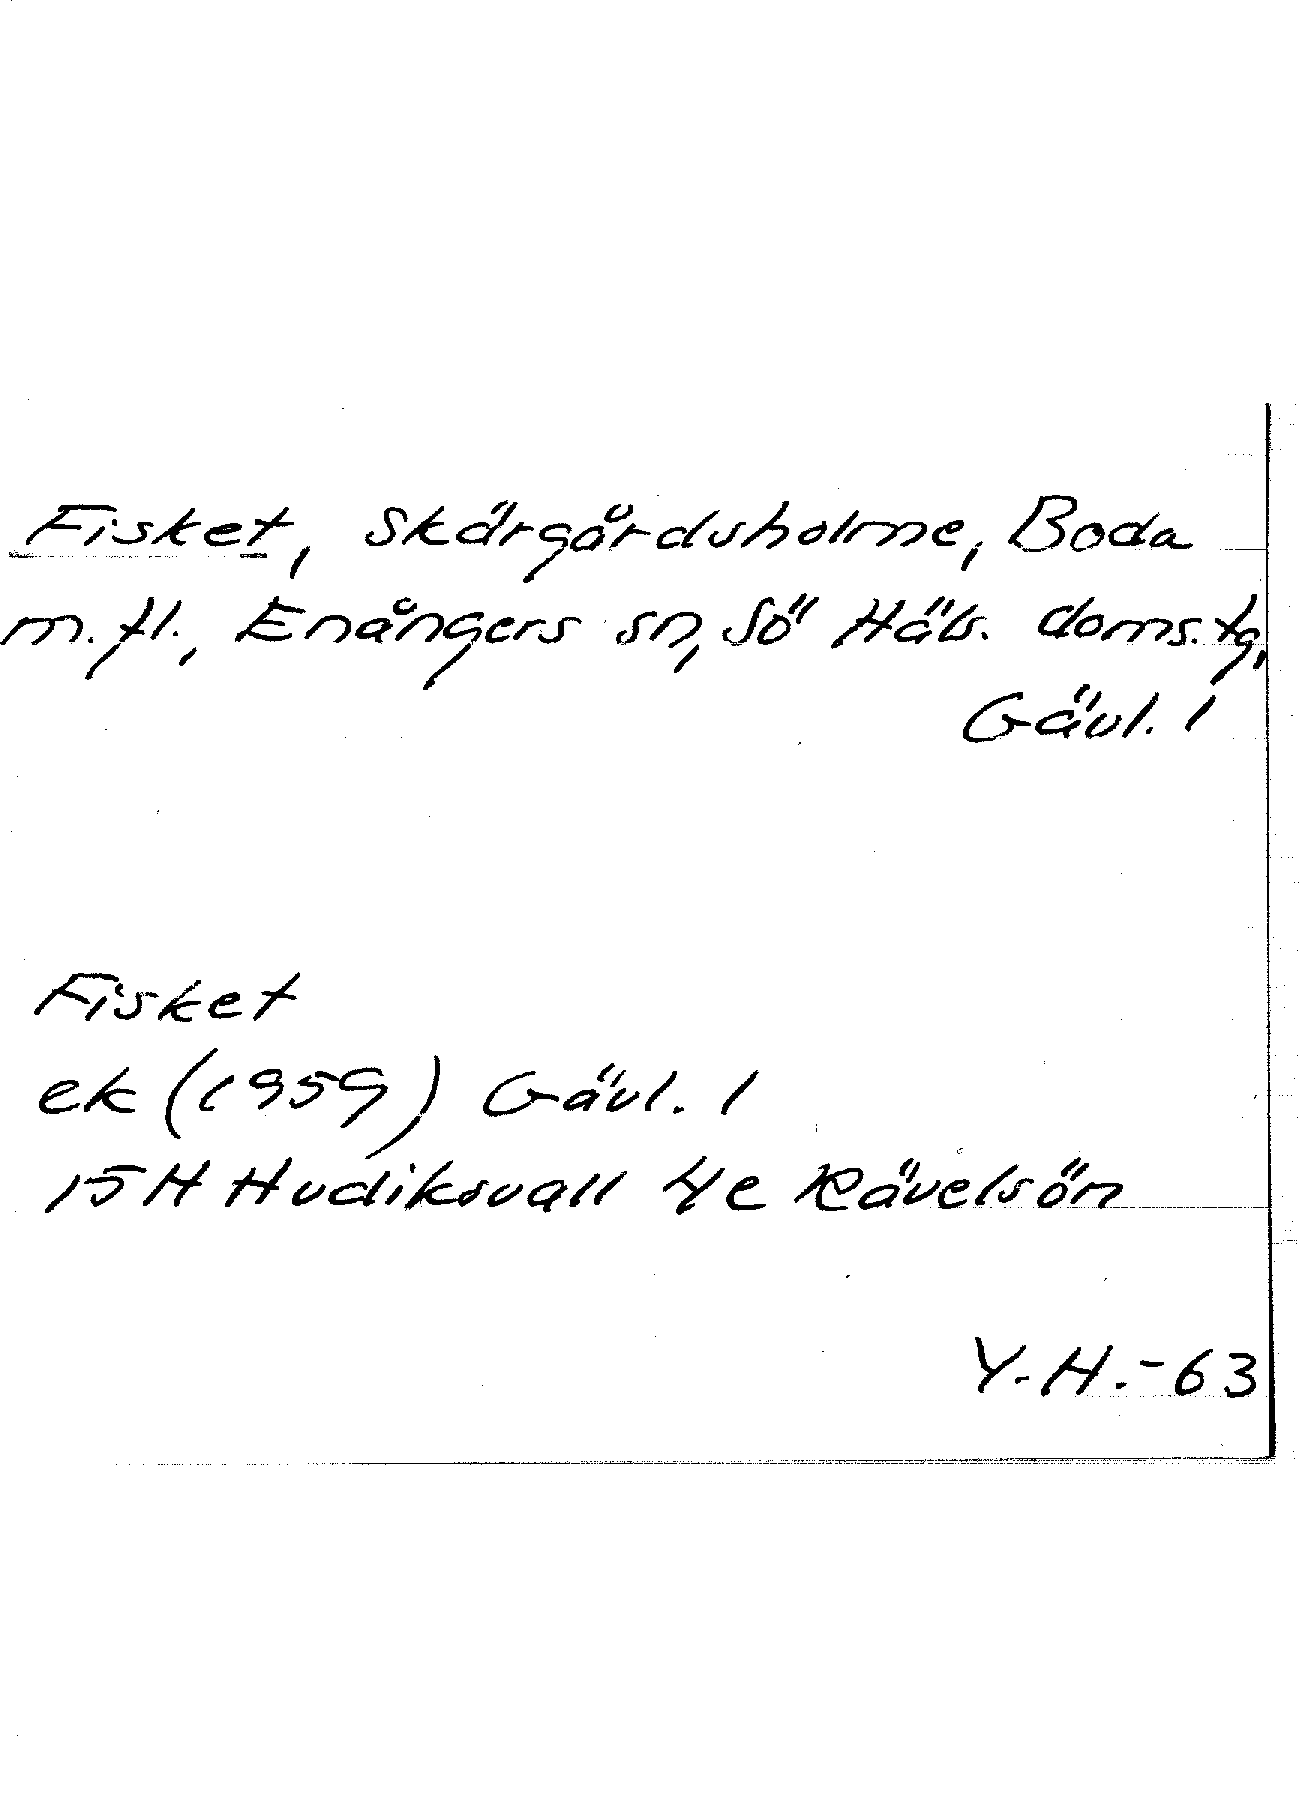 Fisket, Skärgårdsholme, Boda
m.fl., Enångers sn, Sö Häls. doms.tg,
Gävl. l
Fisket
ek (1959) Gävl. l
15 H Hudiksvall 4e Rävelsön
Y.H.-63